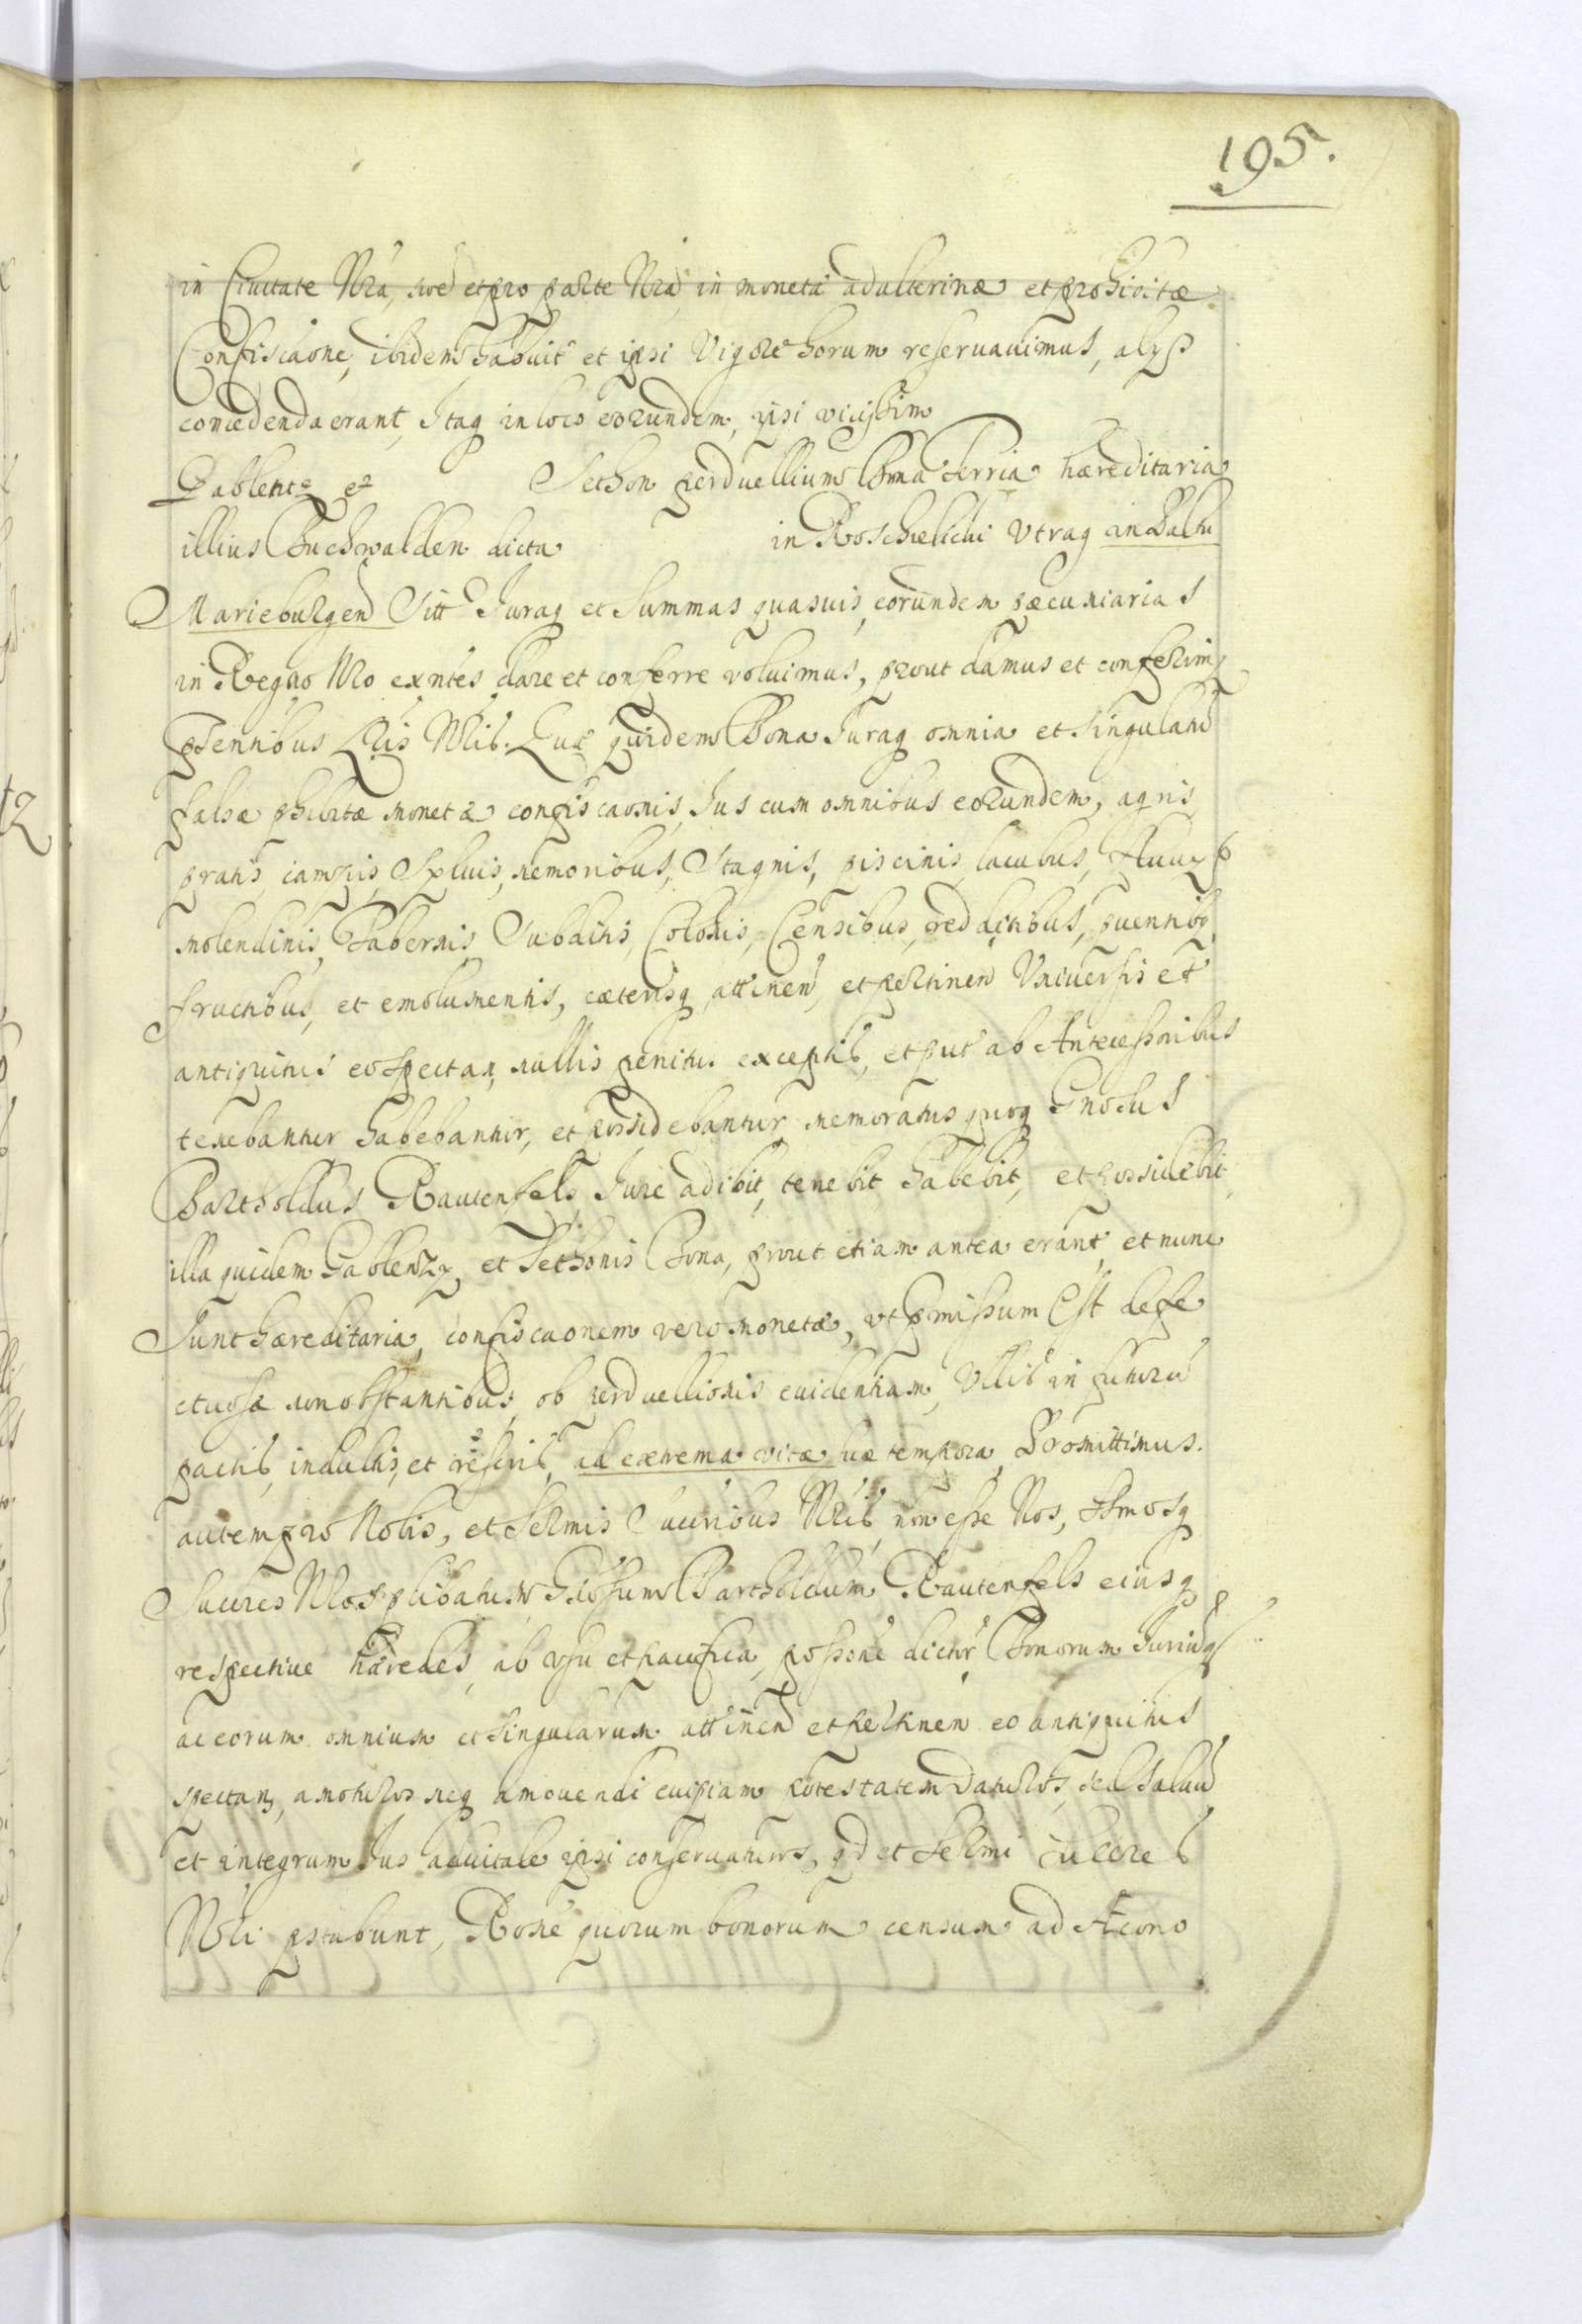 195.
in Ciuitate Nra, sué et pro parte Nra in moneta adulterinæ et prohibitæ
Confiscaone, ibidem habuit et ipsi Vigore horum reseruauimus, alys
concedenda erant, Itaq in locis eorundem, ipsi vicissim
Gablentz et Sethon perduellium Bona terria hæreditaria
illius Buchwalden dicta in Roschelichi Vtraq in Paltu
Marieburgen Sitt Juraq et Summas quasuis, eorundem pæcuniarias
in Regno Nro exntes dare et conferre voluimus, prout damus et conferimq
pñtentibus Lris Nris. Quæ quidem Bona Juraq omnia et singulað
falsæ phibitæ monetæ confiscaonis, Jus cum omnibus eorundem, agris
pratis, campis, Syluis, nemoribus, Stagnis, piscinis, lacubus, fluuys
molendinis, Tabernis, Subditis, Colonis, Censibus, redditibus, puentibq
fructibus, et emolumentis, cæterisq, attinen, et pertinen Vniuersis et
antiquitus eo spectan, nullis penitus exceptis, et put ab Antecessoribus
tenebantur habebantur, et possidebantur memoratus quoq Gnosus
Bartholdus Rautenfels, Jure adibit, tenebit habebit, et possidebit,
illa quidem Gablenzy, et Sethonis Bona, prout etiam antea erant, et nunc
Sunt hæreditaria, confiscaonem vero monetæ, vt pmissum est defe
ctuosæ non obstantibus, ob perduellionis euidentiam, Vllis in futuru
pactis, indultis, et rescris, ad extrema vitæ suæ tempora, Promittimus.
autem pro Nobis, et Sermis Succribus Nris, non esse Nos, Srmosq
Succres Nros plibatum Gnosum Bartholdum Rautenfels eiusq
respectiue hæredes, ab vsu et pacifica, possone dictor Bonorum Juriuq
ac eorum omnium et singularum attinen et pertinen eo antiquitus
spectan, amoturos neq amouendi cuipiam potestatem daturos, sed saluu
et integrum Jus aduitale ipsi conseruaturos, qd et Sermi Succres
Nri pstabunt, Rone quorum bonorum censum ad Æcono